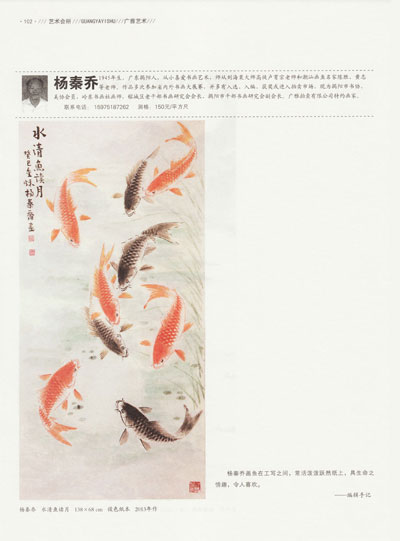 ·102·///艺术会所///GUANGYAYISHU///广雅艺术///
杨秦乔 1945年生，广东揭阳人，从小喜爱书画艺术，师从刘海粟大师高徒卢育宏老师和潮汕画虽名家陈胜、黄志
等老师。作品多次参加省内外书画大展赛，并多有入选、入编、获奖及进入拍卖市场。现为揭阳市书协、
美协会员，岭东书画社画师，榕城区老干部书画研究会会长，揭阳市干部书画研究会副会长，广雅拍卖有限公司特约画家。
联系电话：15975187262 润格：150元/平方尺
水清魚读月
癸巳
杨秦乔画
杨秦乔画鱼在工写之间，常活泼泼跃然纸上，具生命之
情趣，令人喜欢。
——编辑手记
杨秦乔 水清鱼读月 138×68cm 设色纸本 2013年作